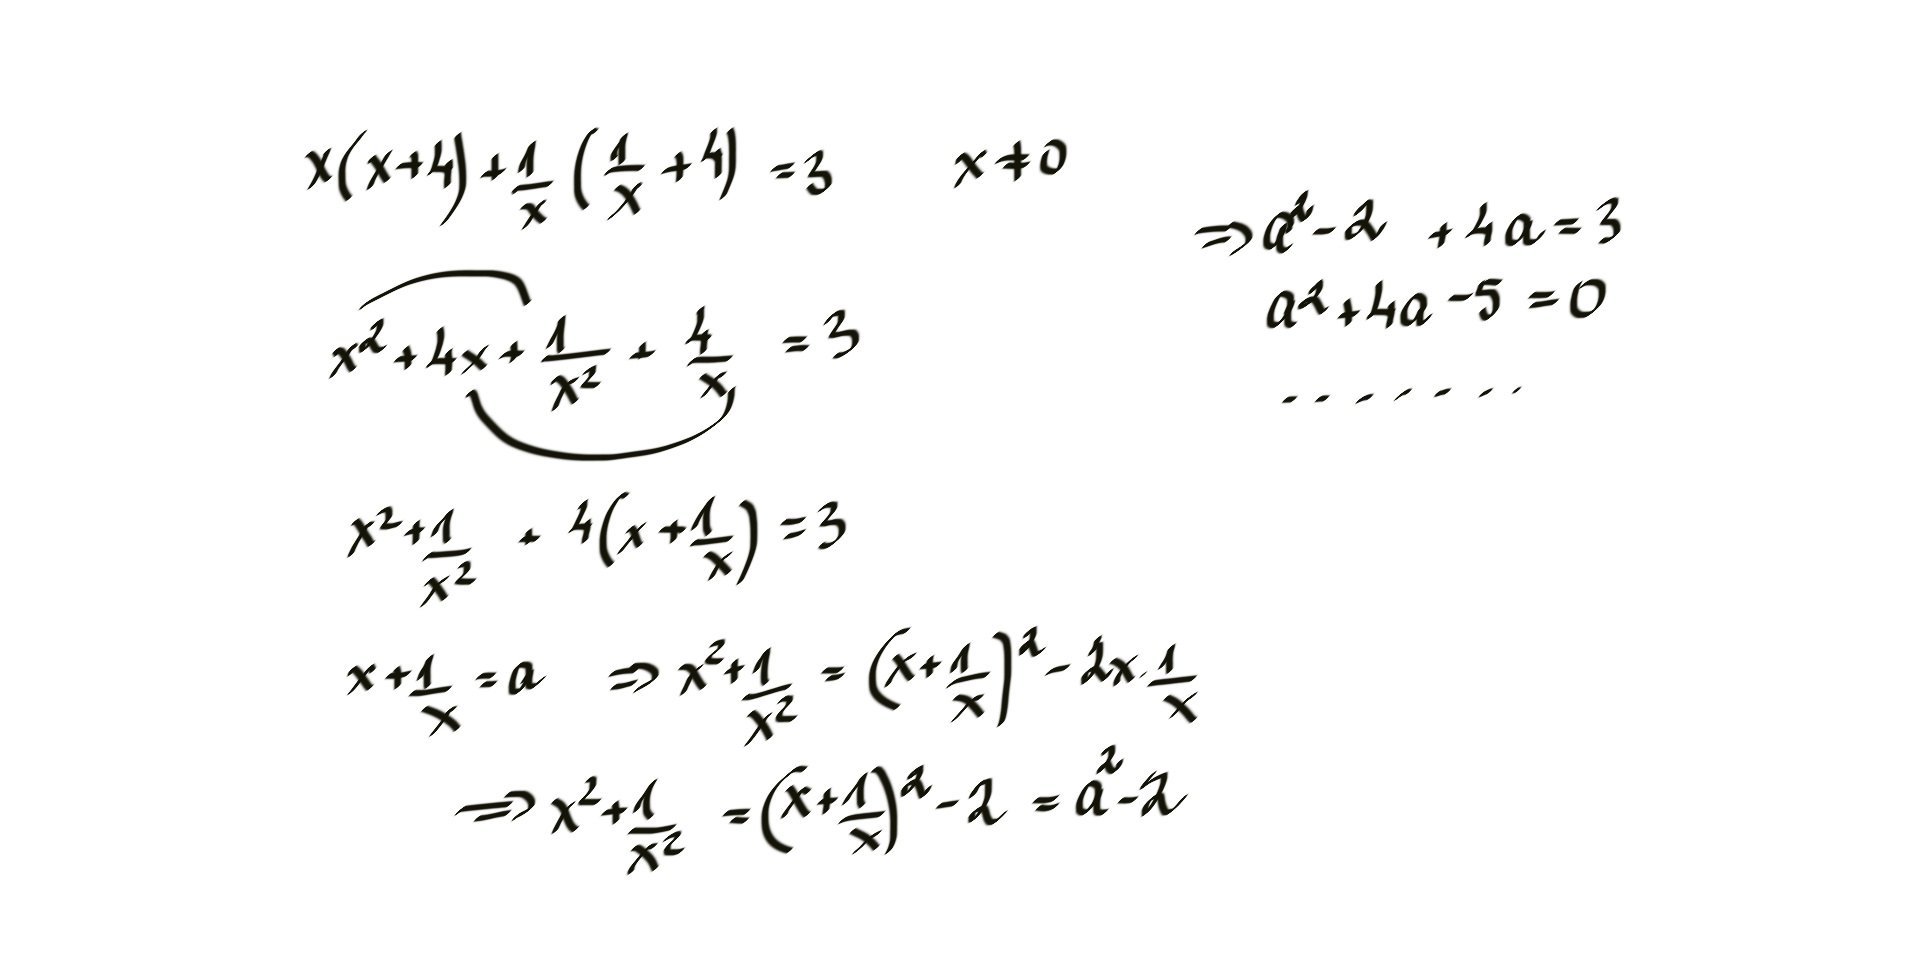 x(x+4)+1/x(1/x+4)=3 x≠0
x²+4x+1/x²+4/x=3
x²+1/x²+4(x+1/x)=3
x+1/x=a ⇒ x²+1/x²=(x+1/x)²-2x·1/x
⇒ x²+1/x²=(x+1/x)²-2=a²-2
⇒ a²-2+4a=3
a²+4a-5=0
.......